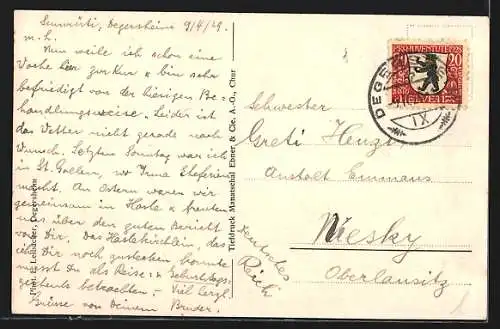 Sennrüti, Degersheim 9/4/29.
m. h.
Nun weile ich schon eine
Woche hier zur Kur & bin sehr
befriedigt von der hiesigen Be-
handlungsweise. Leider ist
das Wetter nicht gerade nach
Wunsch. Letzten Sonntag war ich
in St. Gallen, wo Irma Ferien
macht. An Ostern waren wir
gemeinsam in Hasle & freuten
uns über den guten Bericht
von Dir. Das Haslekirchlein, das
ich Dir noch zustecken konnte
musst Du als Reise- & Geburtstags-
geschenk betrachten. – Viel herzl.
Grüsse von Deinem Bruder.
Phot. E. Leubacher, Degersheim
Tiefdruck, Manatschal Ebner & Cie. A.-G., Chur
PRO JUVENTUTE 1928
20
HELVETIA
DEGERSHEIM
IX
Schwester
Greti Henzi
Anstalt Emmaus
Niesky
Oberlausitz
Deutsches
Reich